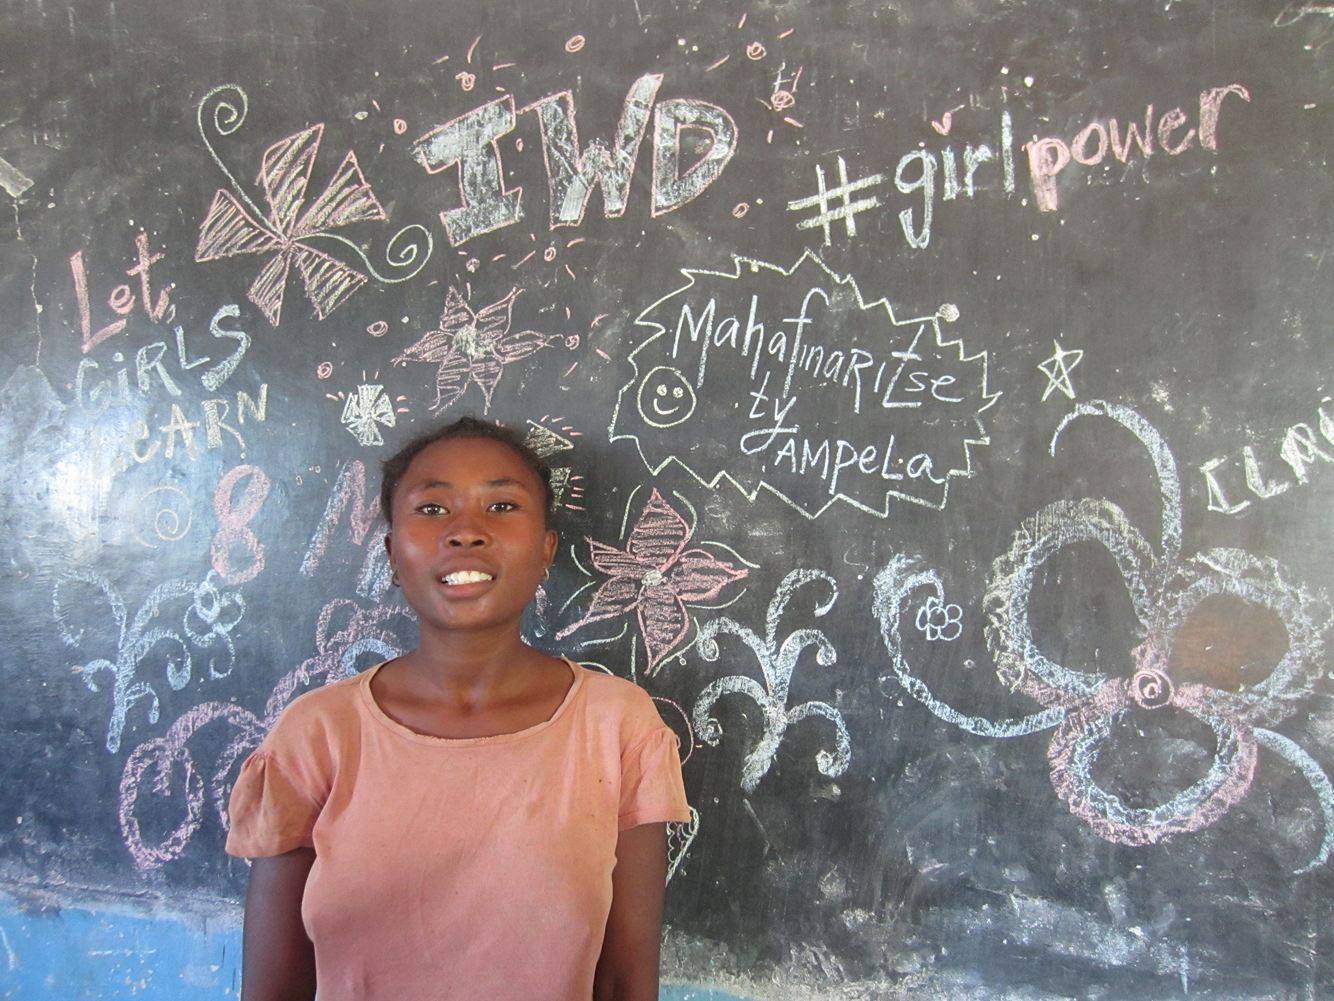 IWD
#girlpower
Let
GiRLS
LEARN
8 M
MahafinaRitse
ty
AMPELA